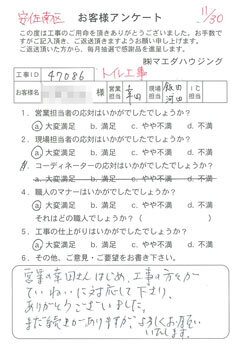 安佐南区
お客様アンケート
11/30
この度は工事のご用命を頂きありがとうございました。お手数で
すがご記入頂き、ご返送頂きますようお願い申し上げます。
ご返送頂いた方から、毎月抽選で感謝品を進呈します。
㈱マエダハウジング
工事ID 47086 トイレ工事
お客様名 様 営業担当 現場担当 飯田 河田 IC担当
1．営業担当者の応対はいかがでしたでしょうか？
a. 大変満足 b. 満足 c. やや不満 d. 不満
2．現場担当者の応対はいかがでしたでしょうか？
a. 大変満足 b. 満足 c. やや不満 d. 不満
3．コーディネーターの応対はいかがでしたでしょうか？
a. 大変満足 b. 満足 c. やや不満 d. 不満
4．職人のマナーはいかがでしたでしょうか？
a. 大変満足 b. 満足 c. やや不満 d. 不満
それはどの職人でしょうか？（ ）
5．工事の仕上がりはいかがでしたでしょうか？
a. 大変満足 b. 満足 c. やや不満 d. 不満
6．その他、ご意見・ご要望をお書き下さい。
営業の幸田さんはじめ、工事の方もとか
ていねいに対応して下さり、
ありがとうございました。
まだ続きがありますが、よろしくお願い
いたします。